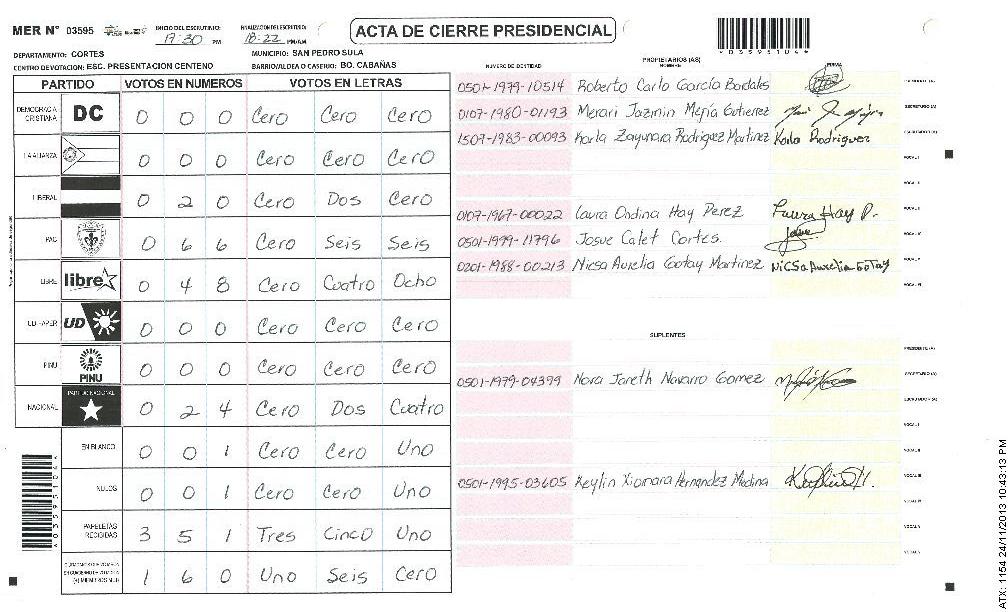 MER Nº 03595 INICIO DEL ESCRUTINIO: 17:30 PM FINALIZACION DEL ESCRUTINIO: 18:22 PM/AM
ACTA DE CIERRE PRESIDENCIAL
DEPARTAMENTO: CORTES MUNICIPIO: SAN PEDRO SULA
CENTRO DEVOTACION: ESC. PRESENTACION CENTENO BARRIO/ALDEA O CASERIO: BO. CABAÑAS
PARTIDO VOTOS EN NUMEROS VOTOS EN LETRAS
DEMOCRACIA CRISTIANA DC 0 0 0 Cero Cero Cero
LA ALIANZA 0 0 0 Cero Cero Cero
LIBERAL 0 2 0 Cero Dos Cero
PAC 0 6 6 Cero Seis Seis
LIBRE libre 0 4 8 Cero Cuatro Ocho
UD-FAPER UD 0 0 0 Cero Cero Cero
PINU PINU 0 0 0 Cero Cero Cero
NACIONAL PARTIDO NACIONAL 0 2 4 Cero Dos Cuatro
EN BLANCO 0 0 1 Cero Cero Uno
NULOS 0 0 1 Cero Cero Uno
PAPELETAS RECIBIDAS 3 5 1 Tres Cinco Uno
(+) MIEMBROS MER 1 6 0 Uno Seis Cero
NUMERO DE IDENTIDAD PROPIETARIOS (AS) NOMBRE FIRMA
0501-1979-10514 Roberto Carlo García Bardales PRESIDENTE (A)
0107-1980-01193 Merari Jazmin Mejía Gutierrez SECRETARIO (A)
1507-1983-00093 Karla Zaynara Rodriguez Martinez Karla Rodriguez ESCRUTADOR (A)
VOCAL I
VOCAL II
0107-1967-00022 Laura Ondina Hay Perez Laura Hay P. VOCAL III
0501-1979-11796 Josue Calet Cortes. Josue VOCAL IV
0201-1988-00213 Nicsa Aurelia Gotay Martinez Nicsa Aurelia Gotay VOCAL V
VOCAL VI
SUPLENTES
PRESIDENTE (A)
0501-1979-04399 Nora Janeth Navarro Gomez SECRETARIO (A)
ESCRUTADOR (A)
VOCAL I
VOCAL II
0501-1995-03605 Keylin Xiomara Hernandez Medina VOCAL III
VOCAL IV
VOCAL V
VOCAL VI
ATX: 1154 24/11/2013 10:43:13 PM